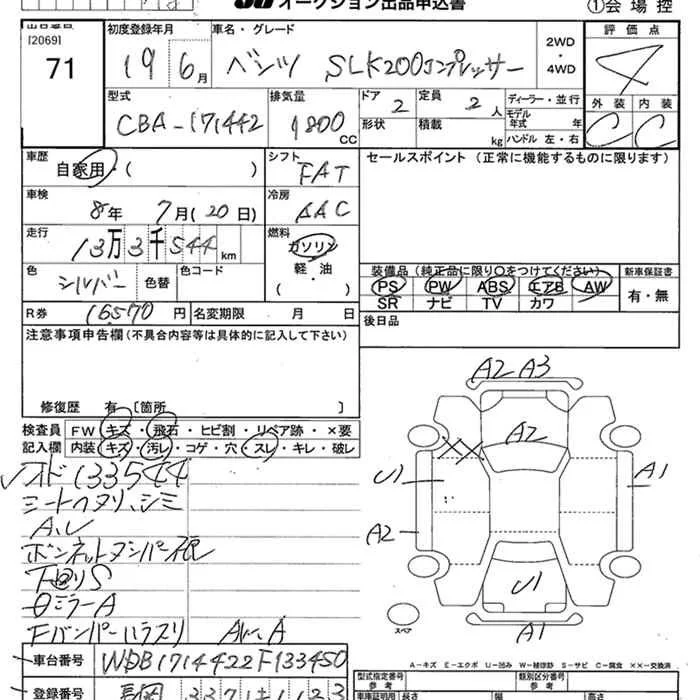 オークション出品申込書
①会場控
出品番号 初度登録年月 車名・グレード 2WD・4WD 評価点
[2069]
71
19 6月 ベンツ SLK200コンプレッサー 4
型式 排気量 ドア 定員 ディーラー・並行 外装 内装
CBA-171442 1800 CC 2 2人 モデル年式 年 C C
形状 積載 kg ハンドル 左・右
車歴 シフト セールスポイント(正常に機能するものに限ります)
自家用・( ) FAT
車検 冷房
8年 7月(20日) AAC
走行 燃料
13万3千544km ガソリン
色 色替 色コード 軽・油
シルバー ( )
装備品(純正品に限り○をつけてください) 新車保証書
PS PW ABS エアB AW 有・無
SR ナビ TV カワ
R券 16570円 名変期限 月 日 後日品
注意事項申告欄(不具合内容等は具体的に記入して下さい)
修復歴 有 〔箇所 〕
検査員 FW キズ・飛石・ヒビ割・リペア跡・×要
記入欄 内装・キズ・汚レ・コゲ・穴・スレ・キレ・破レ
オド133544
シートヘタリ、シミ
A、レ
ボンネットダンパー
下回りS
ミラーA
Fバンパーハラスリ A
A2 A3
A2
XX
U1
A1
A2
U1
スペア
A1
A-キズ E-エクボ U-凹み W-補修跡 S-サビ C-腐食 ××-交換済
車台番号 WDB1714422F133450
型式指定番号 参考 類別区分番号 参考
登録番号 長岡 337 1123
車証明用 長さ 幅 高さ
参考